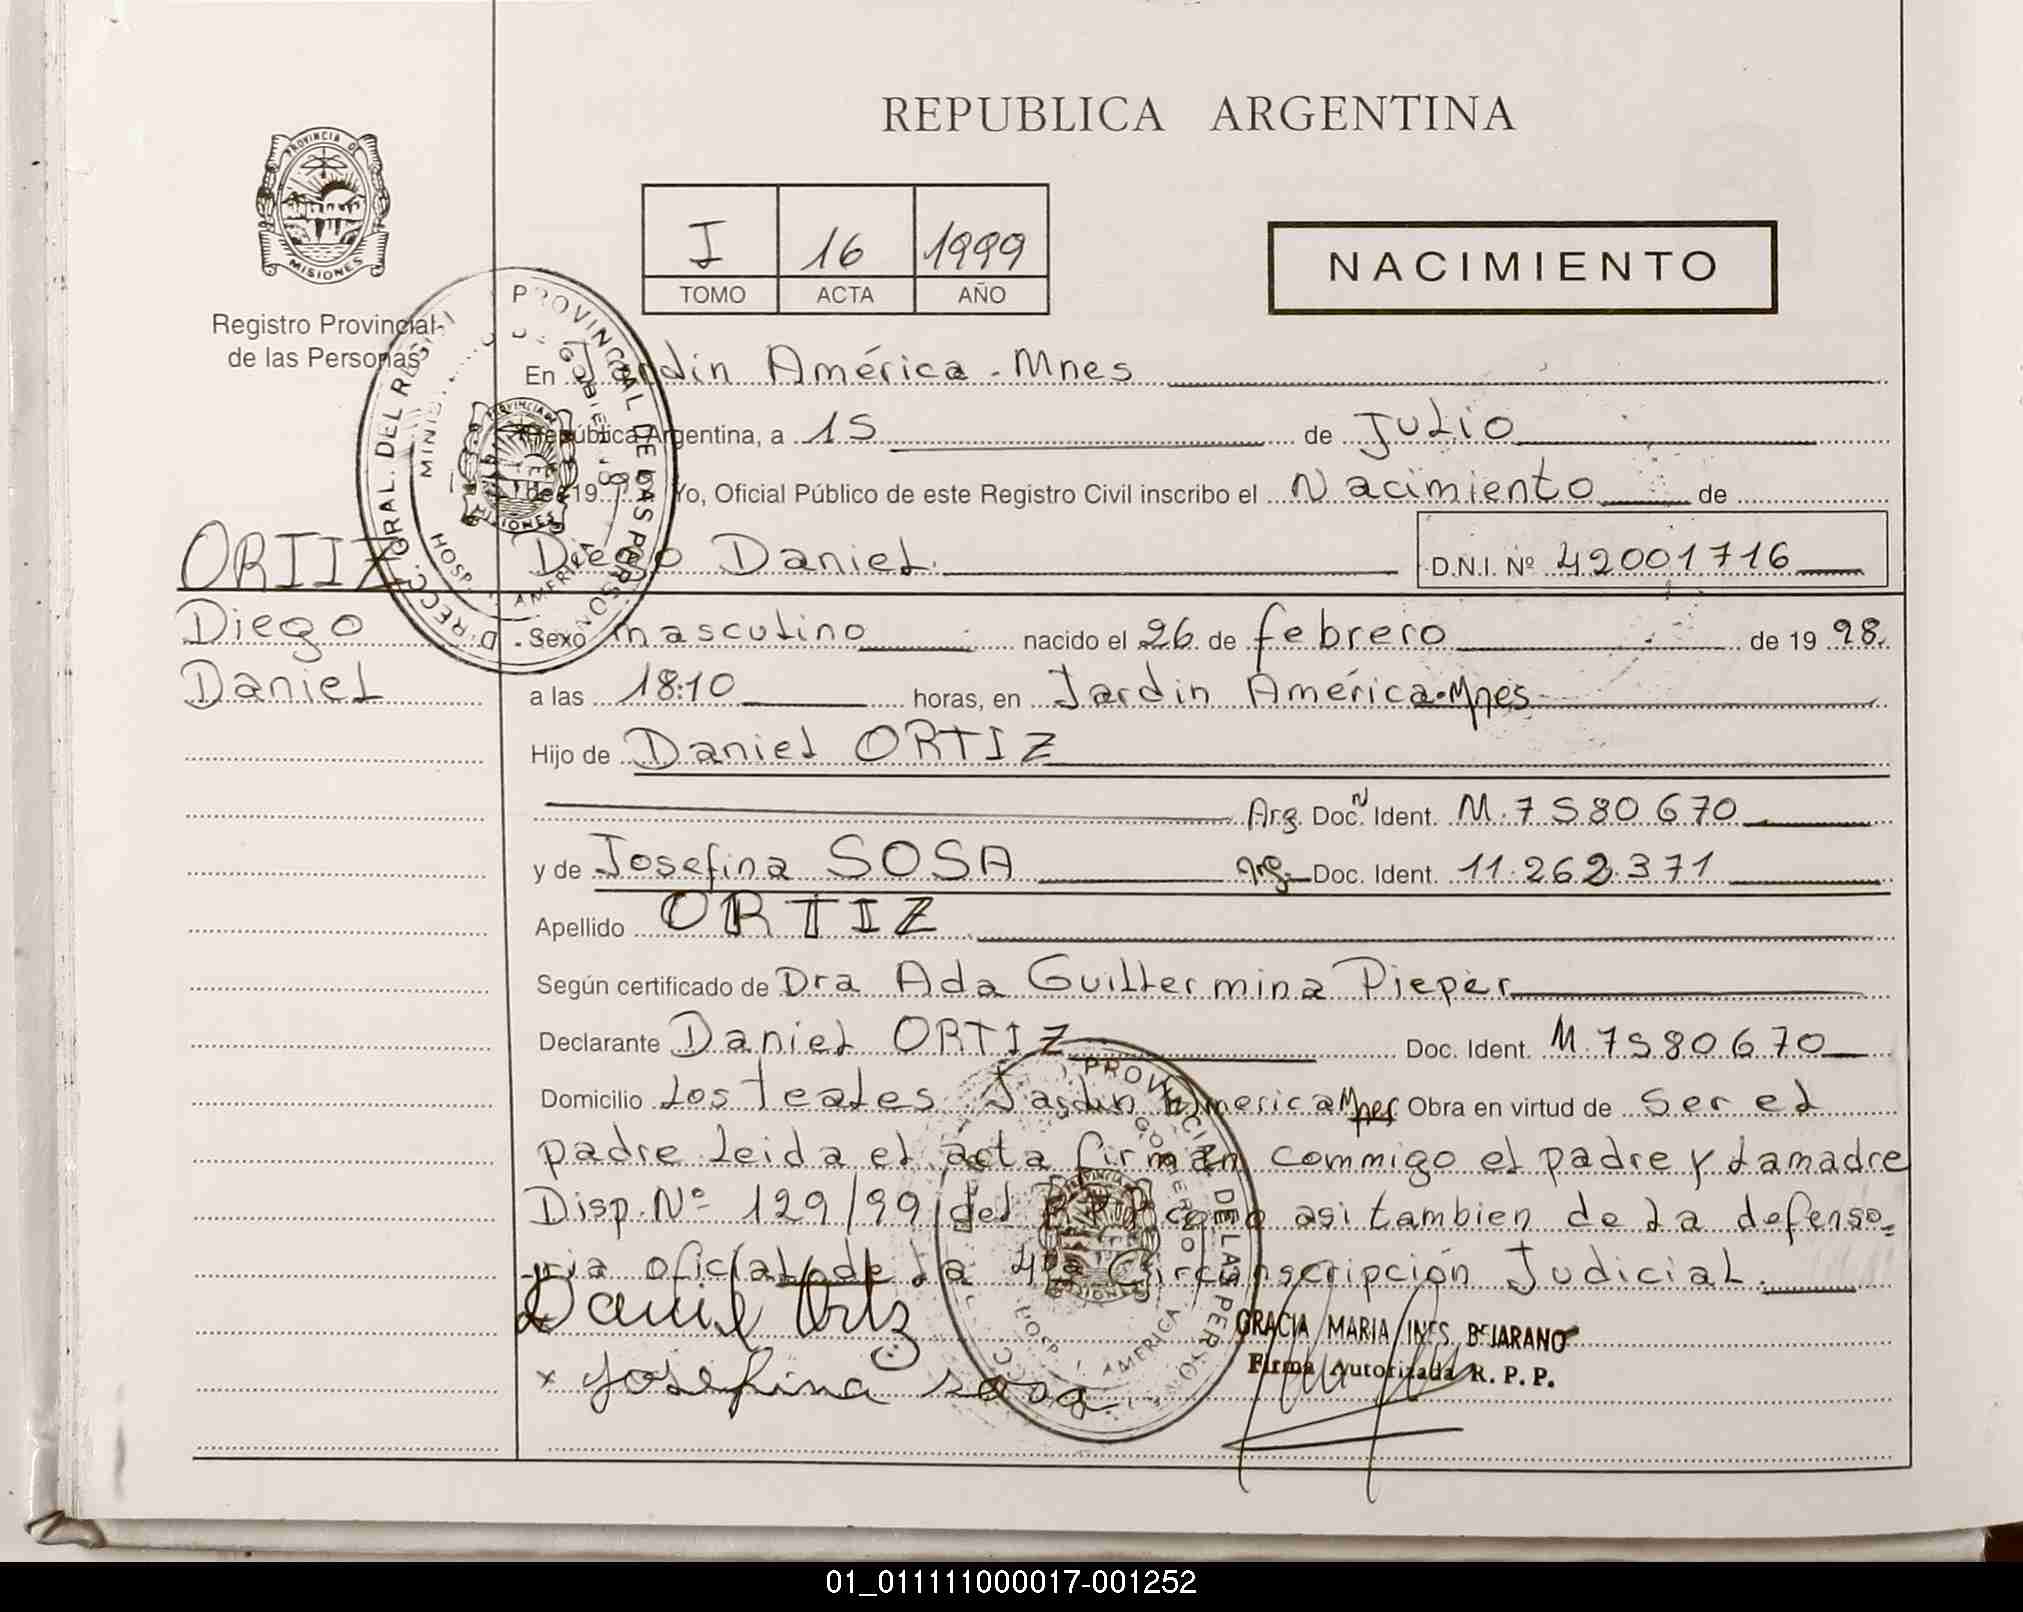 REPUBLICA ARGENTINA
PROVINCIA DE
MISIONES
Registro Provincial
de las Personas
I 16 1999
TOMO ACTA AÑO
NACIMIENTO
En Jardin América - Mnes
República Argentina, a 15 de Julio
de 19 Yo, Oficial Público de este Registro Civil inscribo el Nacimiento de
ORTIZ
Diego
Daniel
Diego Daniel D.N.I. Nº 42001716
Sexo masculino nacido el 26 de febrero de 19 98
a las 18:10 horas, en Jardin América-Mnes
Hijo de Daniel ORTIZ
Arg. Doc. Ident. M. 7580670
y de Josefina SOSA Arg. Doc. Ident. 11.262.371
Apellido ORTIZ
Según certificado de Dra Ada Guillermina Pieper
Declarante Daniel ORTIZ Doc. Ident. M. 7580670
Domicilio Los Teales Jardin America Mnes Obra en virtud de ser el
padre leida el acta firman commigo el padre y la madre
Disp. Nº 129/99 del R.P.P como asi tambien de la defenso=
ria oficial de la 4ta Circunscripción Judicial.
Daniel Ortiz
x Josefina sosa
GRACIA MARIA INES BEJARANO
Firma Autorizada R. P. P.
DIRECC. GRAL. DEL REGIST PROVINCIAL DE LAS PERSONAS
HOSP. AMERICA
PROVINCIAL DE LAS PERSON
GOBIERNO
HOSP. AMERICA
01_011111000017-001252